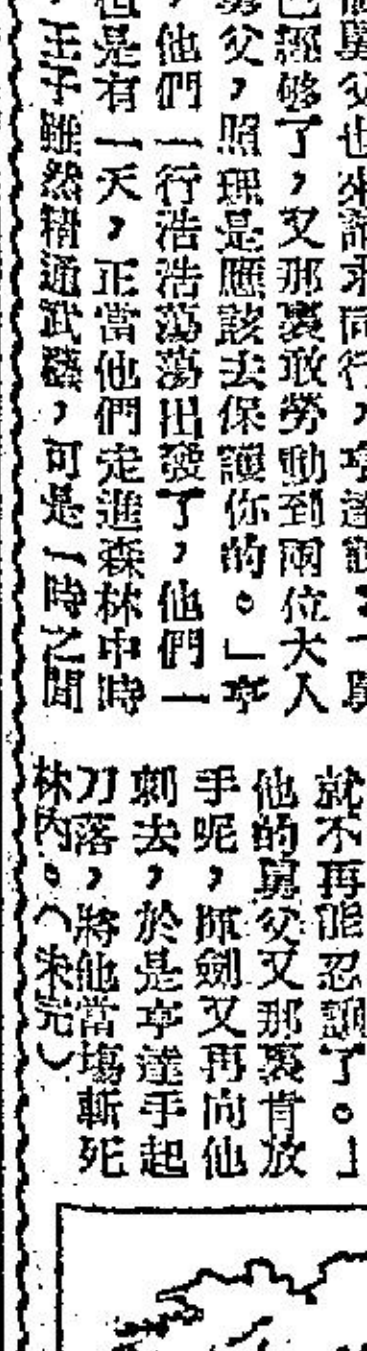 舅父也來請求同行，
已經够了，又那裏敢勞動到兩位大人
舅父，照理是應該去保護你的。」
，他們一行浩浩蕩蕩出發了，他們一
但是有一天，正當他們走進森林中時
，王子雖然精通武藝，可是一時之間
就不再能忍讓了。」
他的舅父又那裏肯放
手呢，揮劍又再向他
刺去，於是亨達手起
刀落，將他當場斬死
林內。（未完）